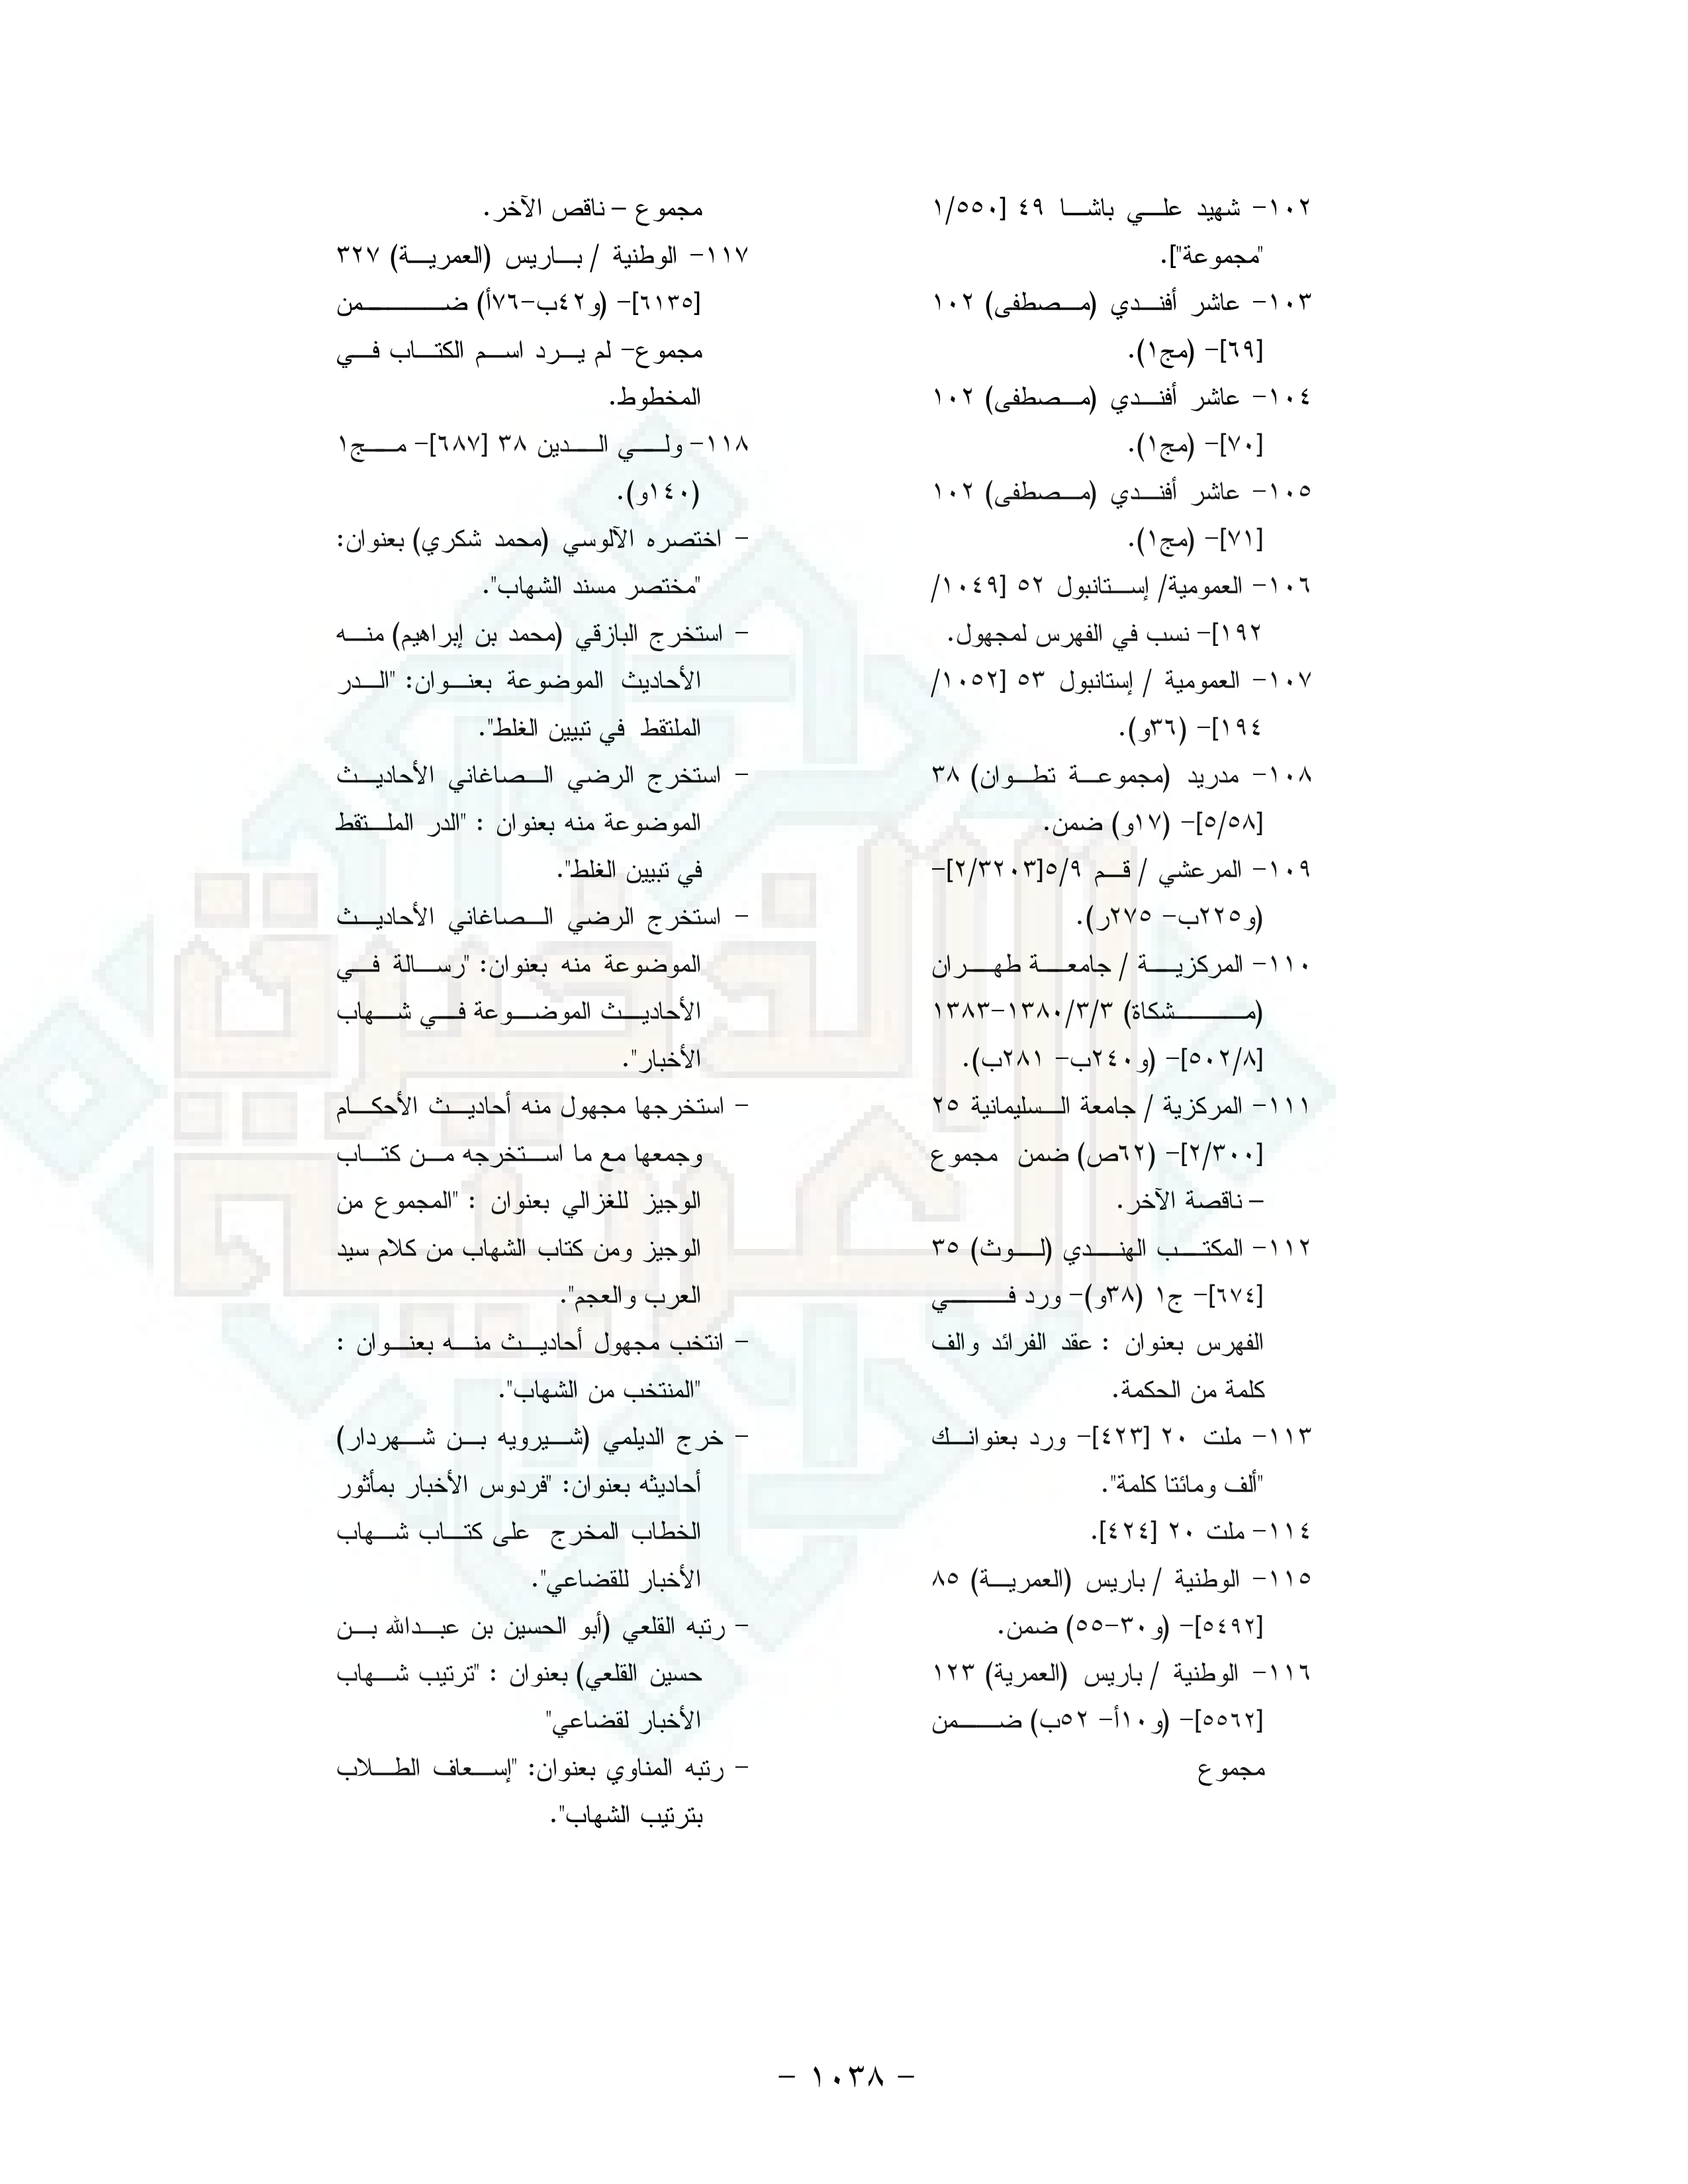 ١٠٢- شهيد علي باشا ٤٩ [١/٥٥٠
"مجموعة"].
١٠٣- عاشر أفندي (مصطفى) ١٠٢
[٦٩]- (مج١).
١٠٤- عاشر أفندي (مصطفى) ١٠٢
[٧٠]- (مج١).
١٠٥- عاشر أفندي (مصطفى) ١٠٢
[٧١]- (مج١).
١٠٦- العمومية/ إستانبول ٥٢ [١٠٤٩/
١٩٢]- نسب في الفهرس لمجهول.
١٠٧- العمومية / إستانبول ٥٣ [١٠٥٢/
١٩٤]- (٣٦و).
١٠٨- مدريد (مجموعة تطوان) ٣٨
[٥/٥٨]- (١٧و) ضمن.
١٠٩- المرعشي / قم ٥/٩[٢/٣٢٠٣]-
(و٢٢٥ب- ٢٧٥ر).
١١٠- المركزية / جامعة طهران
(مشكاة) ١٣٨٠/٣/٣-١٣٨٣
[٥٠٢/٨]- (و٢٤٠ب- ٢٨١ب).
١١١- المركزية / جامعة السليمانية ٢٥
[٢/٣٠٠]- (٦٢ص) ضمن مجموع
– ناقصة الآخر.
١١٢- المكتب الهندي (لوث) ٣٥
[٦٧٤]- ج١ (٣٨و)- ورد في
الفهرس بعنوان : عقد الفرائد والف
كلمة من الحكمة.
١١٣- ملت ٢٠ [٤٢٣]- ورد بعنوانك
"ألف ومائتا كلمة".
١١٤- ملت ٢٠ [٤٢٤].
١١٥- الوطنية / باريس (العمرية) ٨٥
[٥٤٩٢]- (و٣٠-٥٥) ضمن.
١١٦- الوطنية / باريس (العمرية) ١٢٣
[٥٥٦٢]- (و١٠أ- ٥٢ب) ضمن
مجموع
مجموع – ناقص الآخر.
١١٧- الوطنية / باريس (العمرية) ٣٢٧
[٦١٣٥]- (و٤٢ب-٧٦أ) ضمن
مجموع- لم يرد اسم الكتاب في
المخطوط.
١١٨- ولي الدين ٣٨ [٦٨٧]- مج١
(١٤٠و).
- اختصره الآلوسي (محمد شكري) بعنوان:
"مختصر مسند الشهاب".
- استخرج البازقي (محمد بن إبراهيم) منه
الأحاديث الموضوعة بعنوان: "الدر
الملتقط في تبيين الغلط".
- استخرج الرضي الصاغاني الأحاديث
الموضوعة منه بعنوان : "الدر الملتقط
في تبيين الغلط".
- استخرج الرضي الصاغاني الأحاديث
الموضوعة منه بعنوان: "رسالة في
الأحاديث الموضوعة في شهاب
الأخبار".
- استخرجها مجهول منه أحاديث الأحكام
وجمعها مع ما استخرجه من كتاب
الوجيز للغزالي بعنوان : "المجموع من
الوجيز ومن كتاب الشهاب من كلام سيد
العرب والعجم".
- انتخب مجهول أحاديث منه بعنوان :
"المنتخب من الشهاب".
- خرج الديلمي (شيرويه بن شهردار)
أحاديثه بعنوان: "فردوس الأخبار بمأثور
الخطاب المخرج على كتاب شهاب
الأخبار للقضاعي".
- رتبه القلعي (أبو الحسين بن عبدالله بن
حسين القلعي) بعنوان : "ترتيب شهاب
الأخبار لقضاعي"
- رتبه المناوي بعنوان: "إسعاف الطلاب
بترتيب الشهاب".
- ١٠٣٨ -